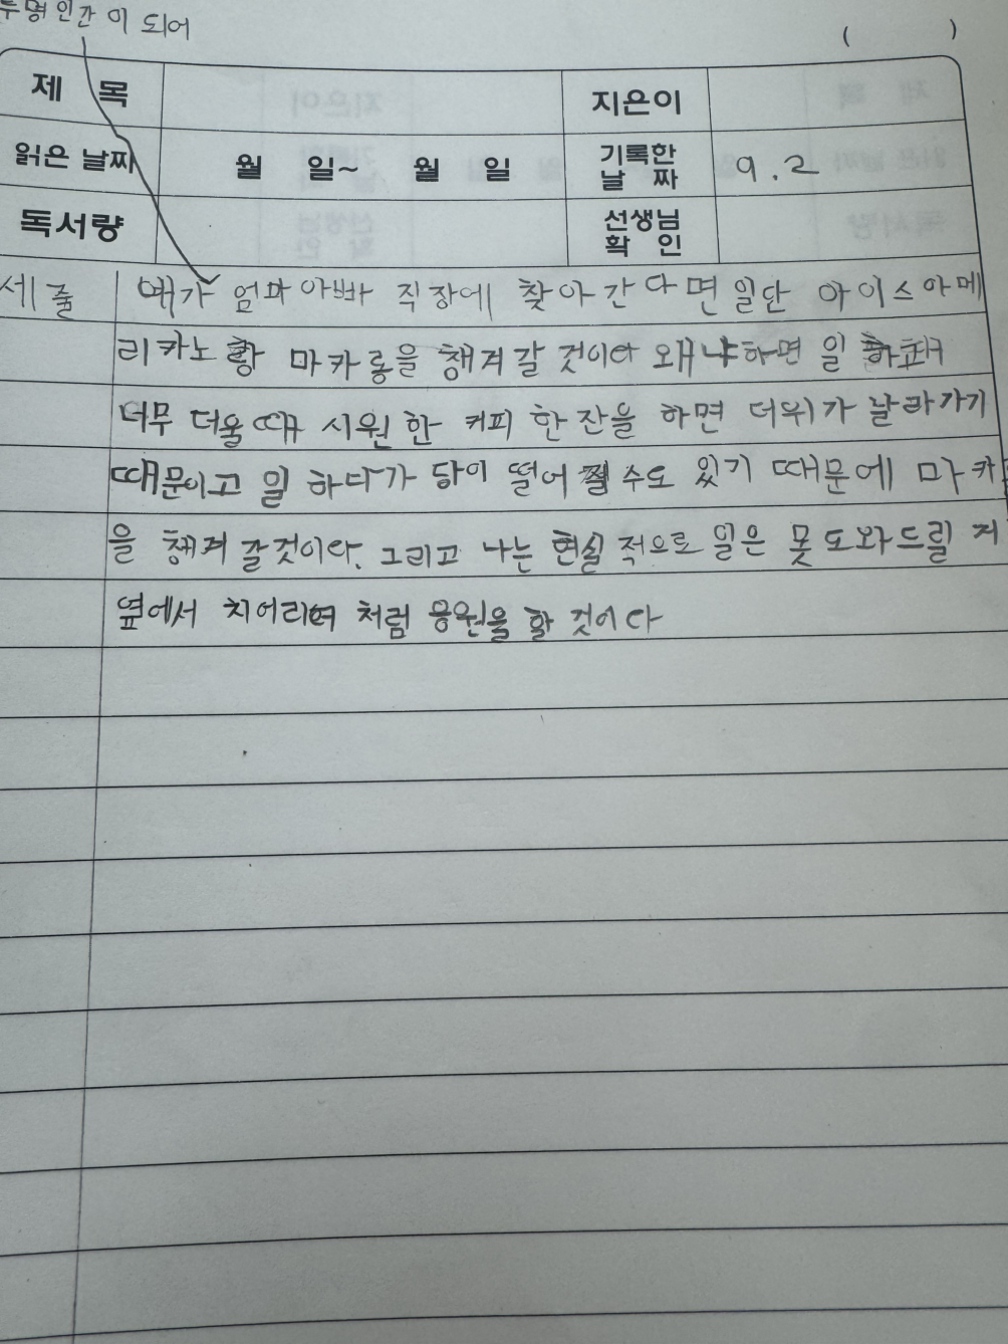 투명인간이 되어
( )
제 목 지은이
읽은 날짜 월 일~ 월 일 기록한 날 짜 9.2
독서량 선생님 확 인
세 줄 내가 엄마아빠 직장에 찾아간다면 일단 아이스아메
리카노랑 마카롱을 챙겨갈 것이다 왜냐하면 일
너무 더울때 시원한 커피 한잔을 하면 더위가 날라가기
때문이고 일 하다가 당이 떨어질 수도 있기 때문에 마카
을 챙겨 갈것이다. 그리고 나는 현실적으로 일은 못도와드릴 지
옆에서 치어리더 처럼 응원을 할 것이다